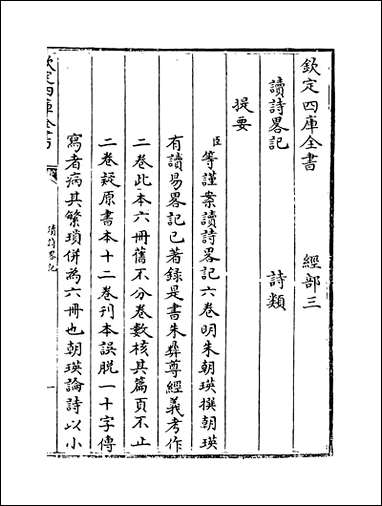 欽定四庫全書　經部三
讀詩畧記　詩類
提要
臣等謹案讀詩畧記六卷明朱朝瑛撰朝瑛
有讀易畧記已著錄是書朱彝尊經義考作
二卷此本六冊舊不分卷數核其篇頁不止
二卷疑原書本十二卷刊本誤脱一十字傳
寫者病其繁瑣併為六冊也朝瑛論詩以小
欽定四庫全書
讀詩畧記
一